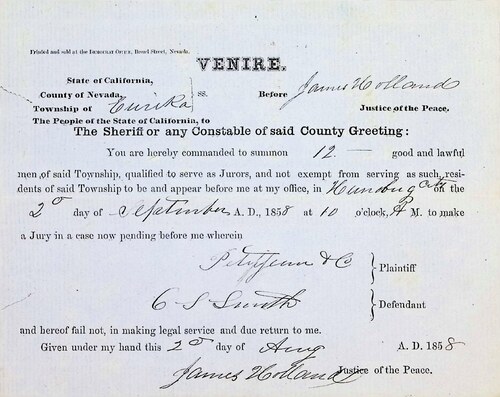 Printed and sold at the DEMOCRAT OFFICE, Broad Street, Nevada.
VENIRE.
State of California,
County of Nevada, } ss. Before James Holland
Township of Eureka Justice of the Peace.
The People of the State of California, to
The Sheriff or any Constable of said County Greeting:
You are hereby commanded to summon 12 — good and lawful
men, of said Township, qualified to serve as Jurors, and not exempt from serving as such, resi-
dents of said Township to be and appear before me at my office, in Humbug City on the
2d day of September A. D., 1858 at 10 o'clock, A M. to make
a Jury in a case now pending before me wherein
Petitjean & Co } Plaintiff
C S Smith } Defendant
and hereof fail not, in making legal service and due return to me.
Given under my hand this 2d day of Aug A. D. 1858
James Holland Justice of the Peace.